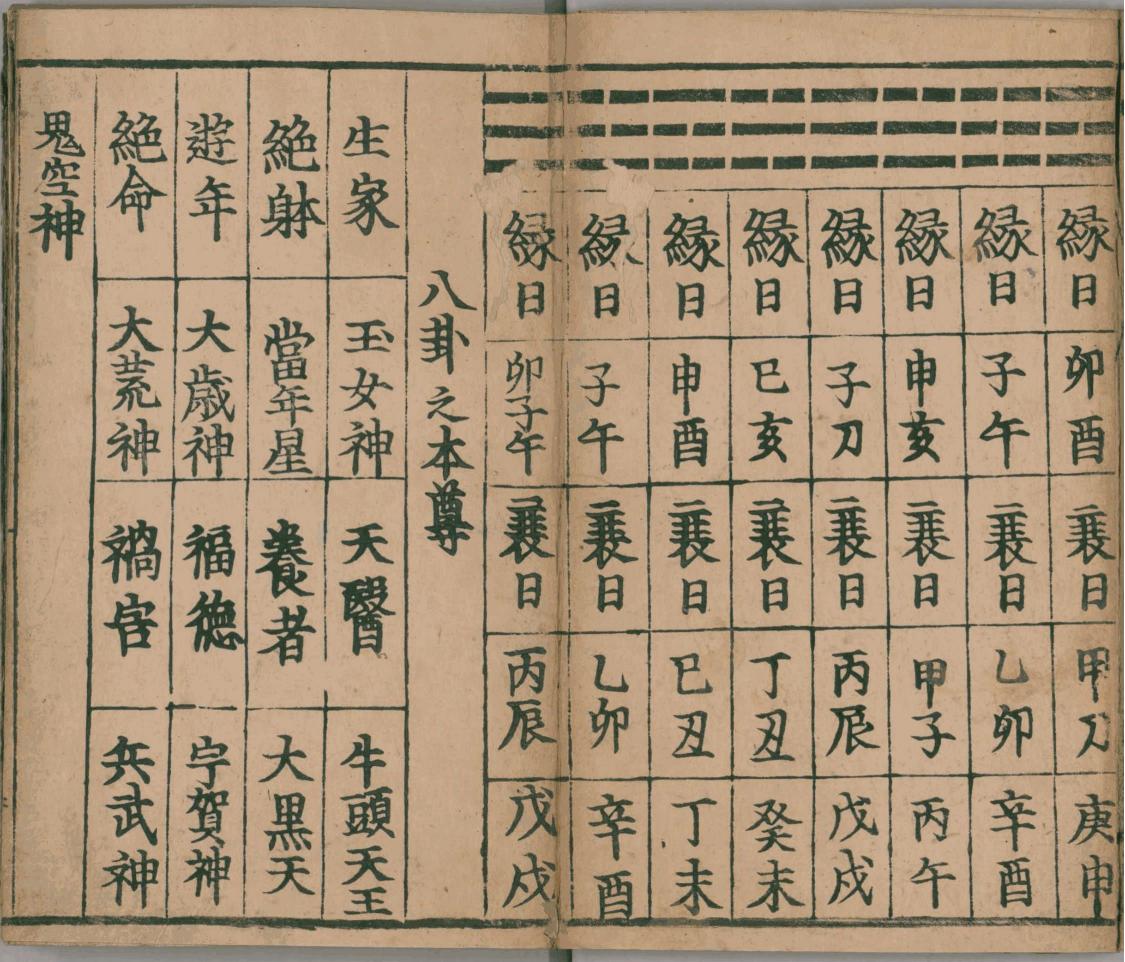 縁日 卯酉 衰日 甲刀 庚申
縁日 子午 衰日 乙卯 辛酉
縁日 申亥 衰日 甲子 丙午
縁日 子刀 衰日 丙辰 戊戌
縁日 巳亥 衰日 丁丑 癸未
縁日 申酉 衰日 巳丑 丁未
縁日 子午 衰日 乙卯 辛酉
縁日 卯子午 衰日 丙辰 戊戌
八卦之本尊
生家 玉女神 天醫 牛頭天王
絶躰 當年星 養者 大黒天
遊年 大歳神 福徳 宇賀神
絶命 大荒神 禍害 兵武神
鬼空神